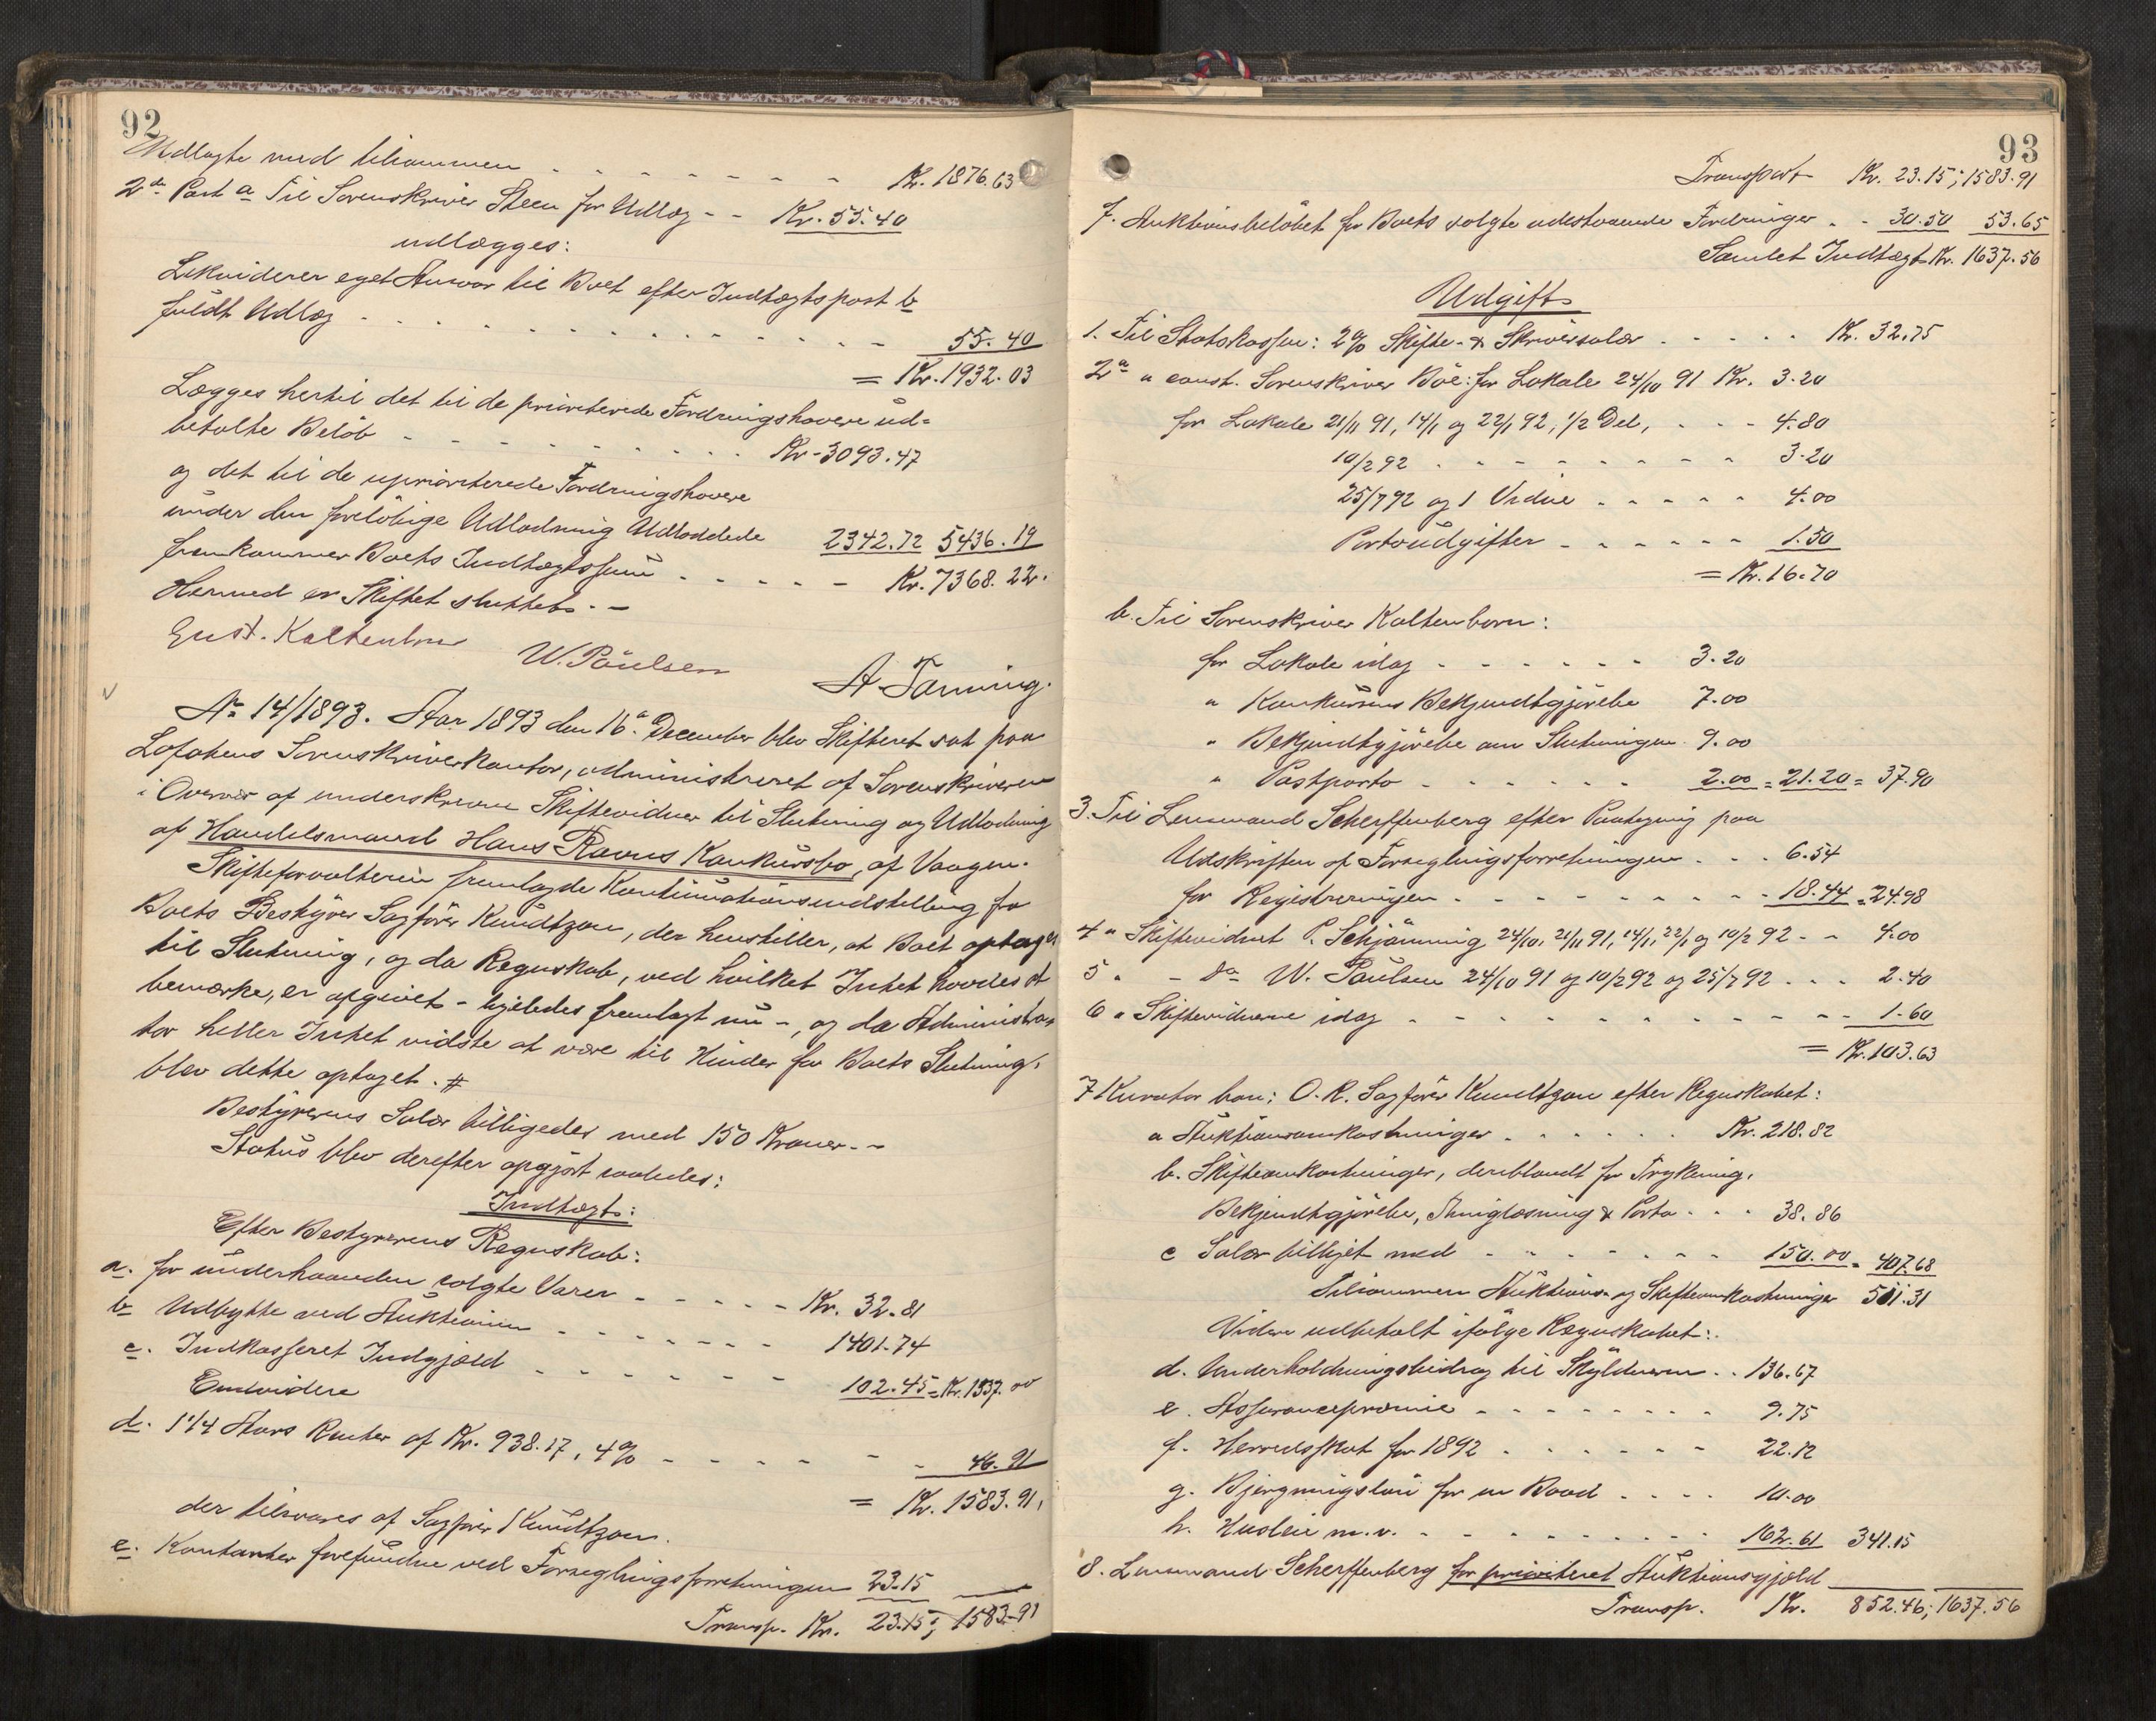 92
Udlagte med tilsammen - - - - - - - - Kr. 1876.63
2de Post a Til Sorenskriver Steen for Udlæg - - Kr. 55.40
udlægges:
Likviderer eget Ansvar til Boet efter Indtægtspost b
fuldt Udlæg - - - - - - - - - - - 55.40
= Kr. 1932.03
Lægges hertil det til de prioriterede Fordringshavere ud=
betalte Beløb - - - - - - - - Kr. 3093.47
og det til de uprioriterede Fordringshavere
under den foreløbige Udlodning Udloddede 2342.72 5436.19
fremkommer Boets Indtægtssum - - - - - Kr. 7368.22.
Hermed er Skiftet sluttet. -
Gust. Kaltenborn W. Paulsen A Tønning.
No 14/1893. Aar 1893 den 16de December blev Skifteret sat paa
Lofotens Sorenskriverkontor, administreret af Sorenskriveren
i Overvær af underskrevne Skiftevidner til Slutning og Udlodning
af Handelsmand Hans Ravns Konkursbo, af Vaagen.
Skifteforvalteren fremlagde Kontinuationsindstilling fra
Boets Bestyrer Sagfører Knudtzon, der henstiller, at Boet optages
til Slutning, og da Regnskab, ved hvilket Intet havdes at
bemærke, er afgivet - ligeledes fremlagt nu -, og da Administra
tor heller Intet vidste at være til Hinder for Boets Slutning,
blev dette optaget. #
Bestyrerens Salær billigedes med 150 Kroner. -
Status blev derefter opgjort saaledes:
Indtægt:
Efter Bestyrerens Regnskab:
a. for underhaanden solgte Varer - - - - - Kr. 32.81
b Udbytte ved Auktionen - - - - - - - 1401.74
c. Indkasseret Indgjæld - - - - - - - 102.45 = Kr. 1537.00
Endvidere
d. 1 1/4 Aars Renter af Kr. 938.17, 4% - - - - - - 46.91
= Kr. 1583.91,
der tilsvares af Sagfører Knudtzon.
e. Kontanter forefundne ved Forseglingsforretningen 23.15
Transp. Kr. 23.15; 1583.91
93
Transport Kr. 23.15; 1583.91
f. Auktionsbeløbet for Boets solgte udestaaende Fordringer - - 30.50 53.65
Samlet Indtægt Kr. 1637.56
Udgift
1. Til Statskassen: 2% Skifte- & Skriversalær - - - - - Kr. 32.75
2a " const. Sorenskriver Böe: for Lokale 24/10 91 Kr. 3.20
for Lokale 21/11 91, 14/1 og 22/1 92, 1/2 Del, - - - 4.80
10/2 92 - - - - - - - - 3.20
25/7 92 og 1 Vidne - - - - - 4.00
Portoudgifter - - - - - - 1.50
= Kr. 16.70
b. Til Sorenskriver Kaltenborn:
for Lokale idag - - - - - - 3.20
" Konkursens Bekjendtgjørelse 7.00
" Bekjendtgjørelse om Slutningen 9.00
" Postporto - - - - - - 2.00 = 21.20 = 37.90
3. Til Lensmand Scherffenberg efter Paategning paa
Udskriften af Forseglingsforretningen - - - 6.54
for Registreringen - - - - - - - - - 18.44 = 24.98
4 " Skiftevidnet P. Schjønning 24/10, 21/11 91, 14/1, 22/1 og 10/2 92 - - 4.00
5 " - do W. Paulsen 24/10 91 og 10/2 92 og 25/7 92 - - - 2.40
6 " Skiftevidnerne idag - - - - - - - - - - - 1.60
= Kr. 103.63
7 Kurator bon; O.R. Sagfører Knudtzon efter Regnskabet:
a Auktionsomkostninger - - - - - - Kr. 218.82
b. Skifteomkostninger, deriblandt for Trykning,
Bekjendtgjørelse, & Porto - - - 38.86
c Salær billiget med - - - - - - - 150.00 = 407.68
Tilsammen Auktions- og Skifteomkostninger 511.31
Videre udbetalt ifølge Regnskabet:
d. Underholdningsbidrag til Skyldneren - - 136.67
e. Assurancepræmie - - - - - - - - 9.75
f. Herredsskat for 1892 - - - - - - 22.12
g. Bjergningsløn for en Baad - - - - 10.00
h. Husleie m.v. - - - - - - - - - - 162.61 341.15
8. Lensmand Scherffenberg for prioriteret Auktionsgjæld
Transp. Kr. 852.46; 1637.56